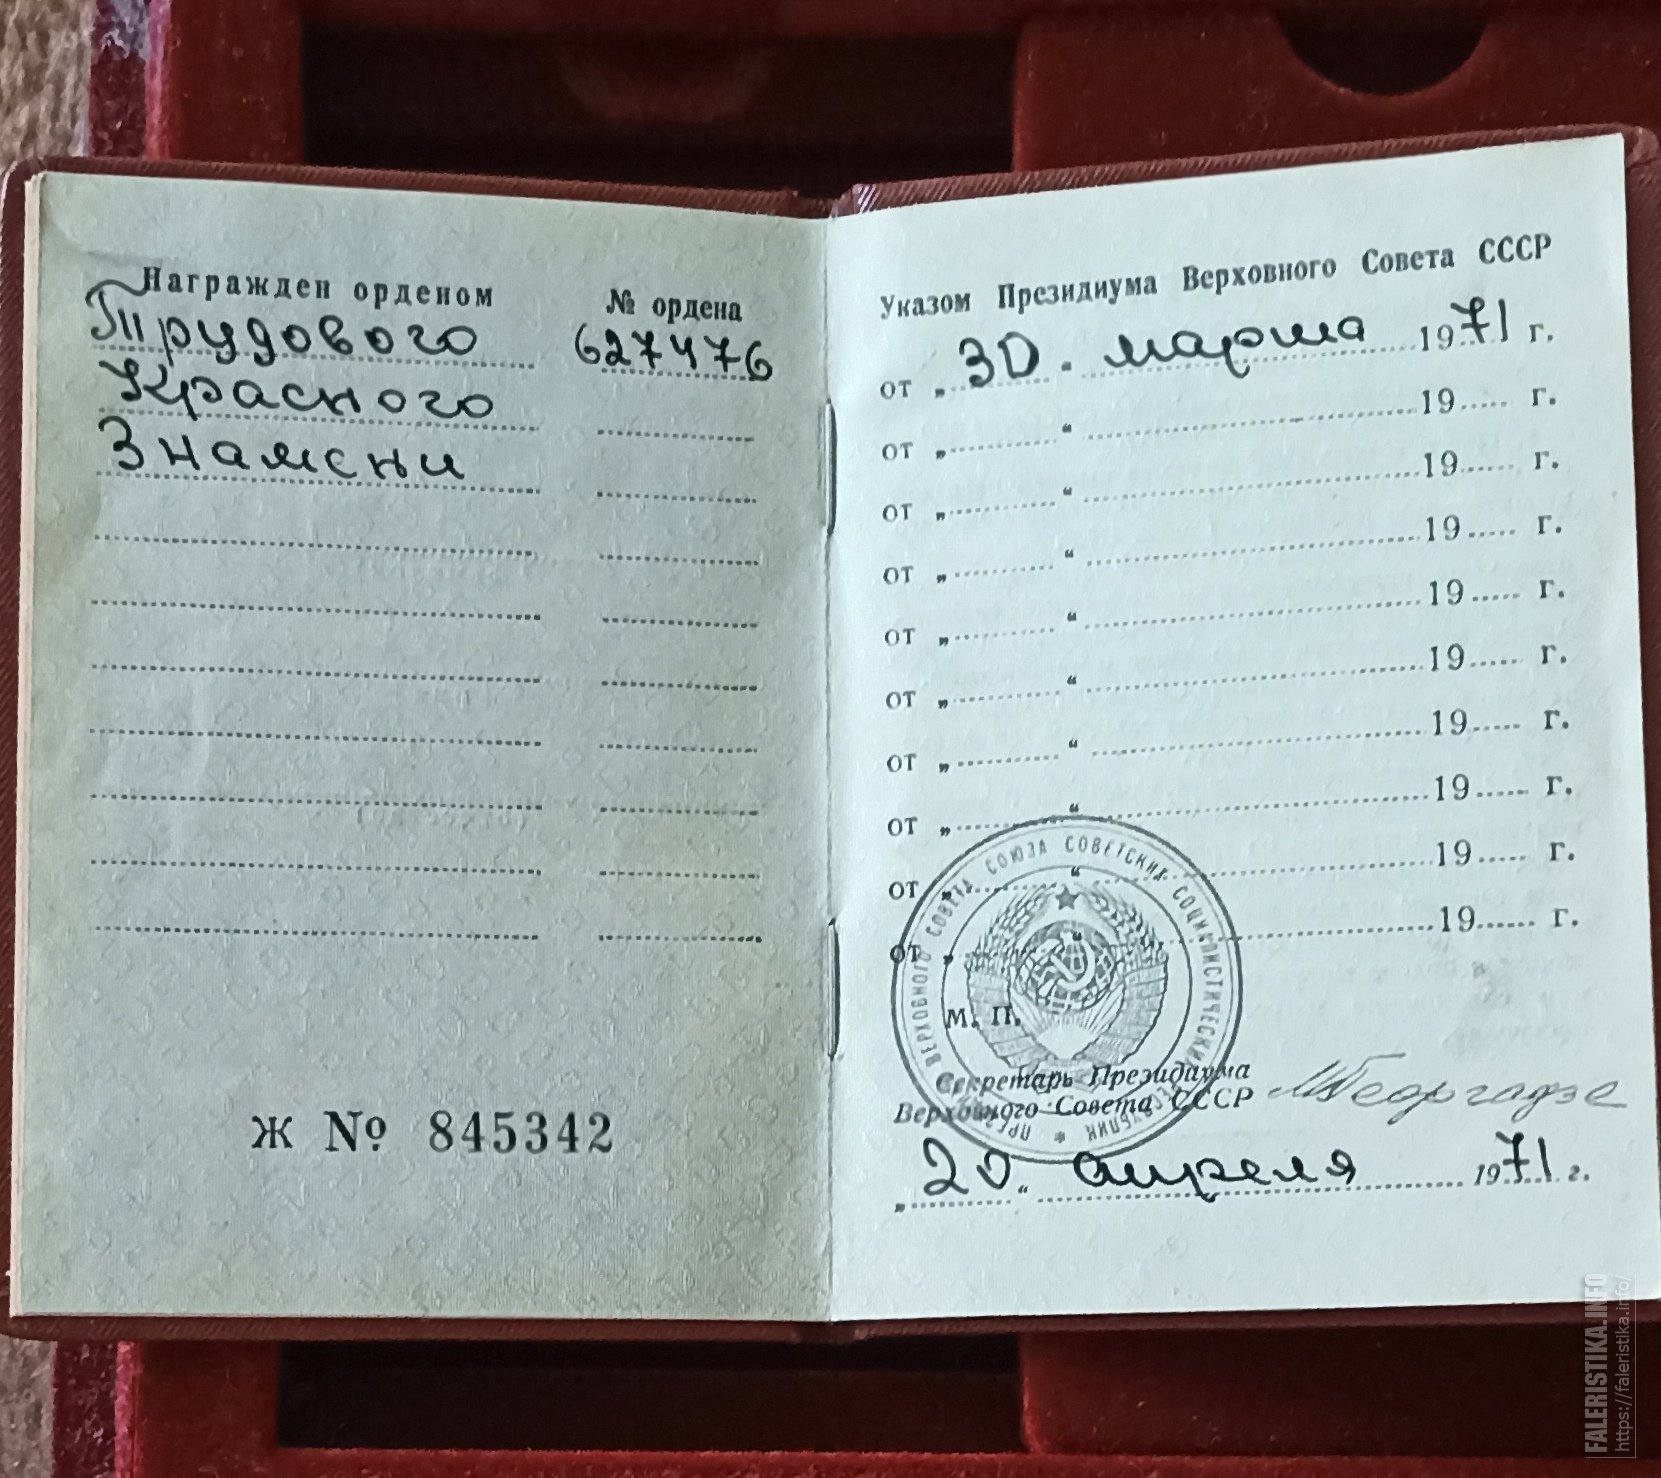 Награжден орденом
№ ордена
Трудового
627476
Красного
Знамени
Ж № 845342
Указом Президиума Верховного Совета СССР
от „ 30 “ марта 1971 г.
от „ “ 19 г.
от „ “ 19 г.
от „ “ 19 г.
от „ “ 19 г.
от „ “ 19 г.
от „ “ 19 г.
от „ “ 19 г.
от „ “ 19 г.
от „ “ 19 г.
ПРЕЗИДИУМ ВЕРХОВНОГО СОВЕТА СОЮЗА СОВЕТСКИХ СОЦИАЛИСТИЧЕСКИХ РЕСПУБЛИК *
М. П.
Секретарь Президиума
Верховного Совета СССР
МГеоргадзе
„ 20 “ апреля 1971 г.
FALERISTIKA.INFO
https://faleristika.info/